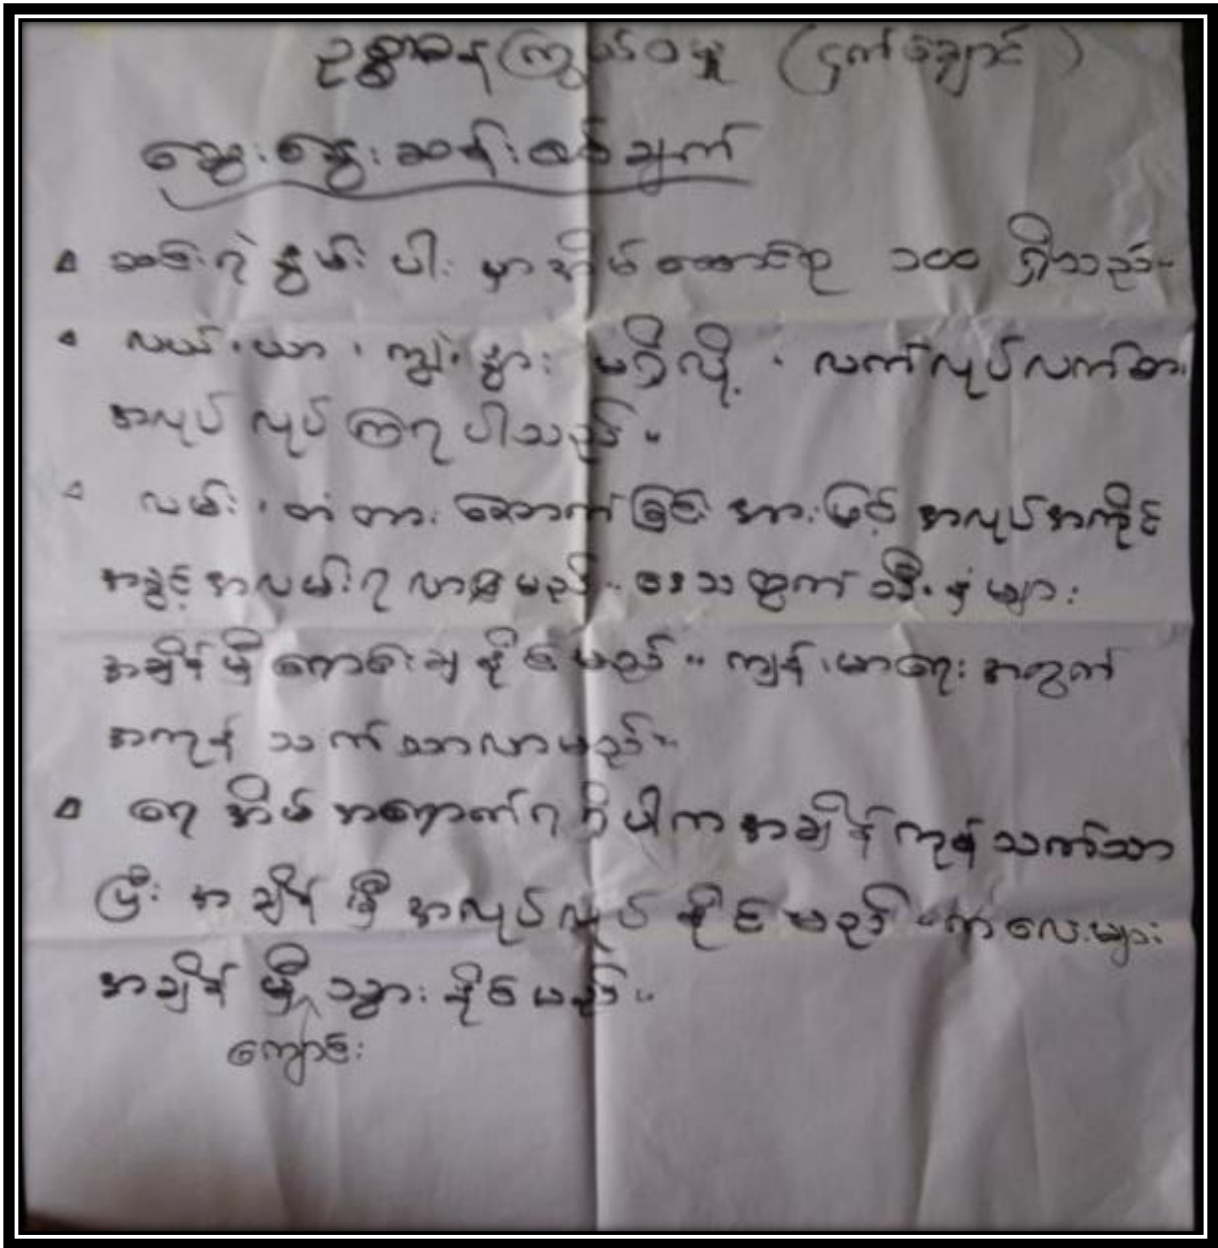 ဥစ္စာဓနကြွယ်ဝမှု (ငှက်ချောင်း)
ဆွေးနွေးဆန်းစစ်ချက်
ဆင်းရဲနွမ်းပါးမှာအိမ်ထောင်စု ၁၀၀ ရှိသည်။
လယ်၊ယာ၊ ကျွဲ၊နွား မရှိလို့၊ လက်လုပ်လက်စား
အလုပ်လုပ်ကြရပါသည်။
လမ်း၊တံတား ဆောက်ခြင်းအားဖြင့် အလုပ်အကိုင်
အခွင့်အလမ်းရလာမည်။ ဒေသထွက်သီးနှံများ
အချိန်မှီရောင်းချနိုင်မည်။ ကျန်းမာရေးအတွက်
အကုန်သက်သာလာမည်။
ရေအိမ်အရောက်ရရှိပါကအချိန်ကုန်သက်သာ
ပြီးအချိန်မှီအလုပ်လုပ်နိုင်မည်။ကလေးများ
အချိန်မှီ သွားနိုင်မည်။
ကျောင်း